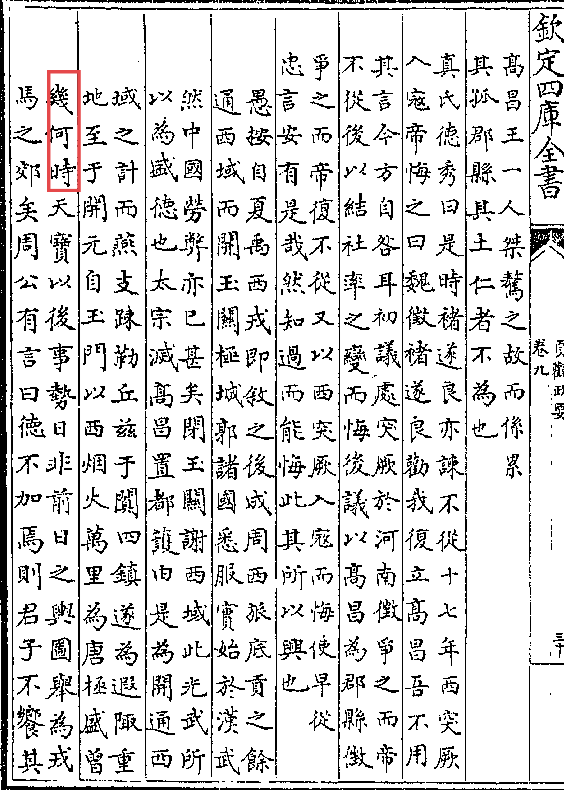 欽定四庫全書
貞觀政要
卷九
三十
高昌王一人桀驁之故而係累
其孤郡縣其土仁者不為也
真氏德秀曰是時褚遂良亦諫不從十七年西突厥
入寇帝悔之曰魏徵褚遂良勸我復立高昌吾不用
其言今方自咎耳初議處突厥於河南徵爭之而帝
不從後以結社率之變而悔後議以高昌為郡縣徵
爭之而帝復不從又以西突厥入寇而悔使早從
忠言安有是哉然知過而能悔此其所以興也
愚按自夏禹西戎即敘之後成周西旅底貢之餘
通西域而開玉關極城郭諸國悉服實始於漢武
然中國勞弊亦已甚矣閉玉關謝西域此光武所
以為盛德也太宗滅高昌置都護由是為開通西
域之計而燕支踈勒丘兹于闐四鎮遂為遐陬重
地至于開元自玉門以西烟火萬里為唐極盛曾
幾何時天寶以後事勢日非前日之輿圖舉為戎
馬之郊矣周公有言曰德不加焉則君子不饗其